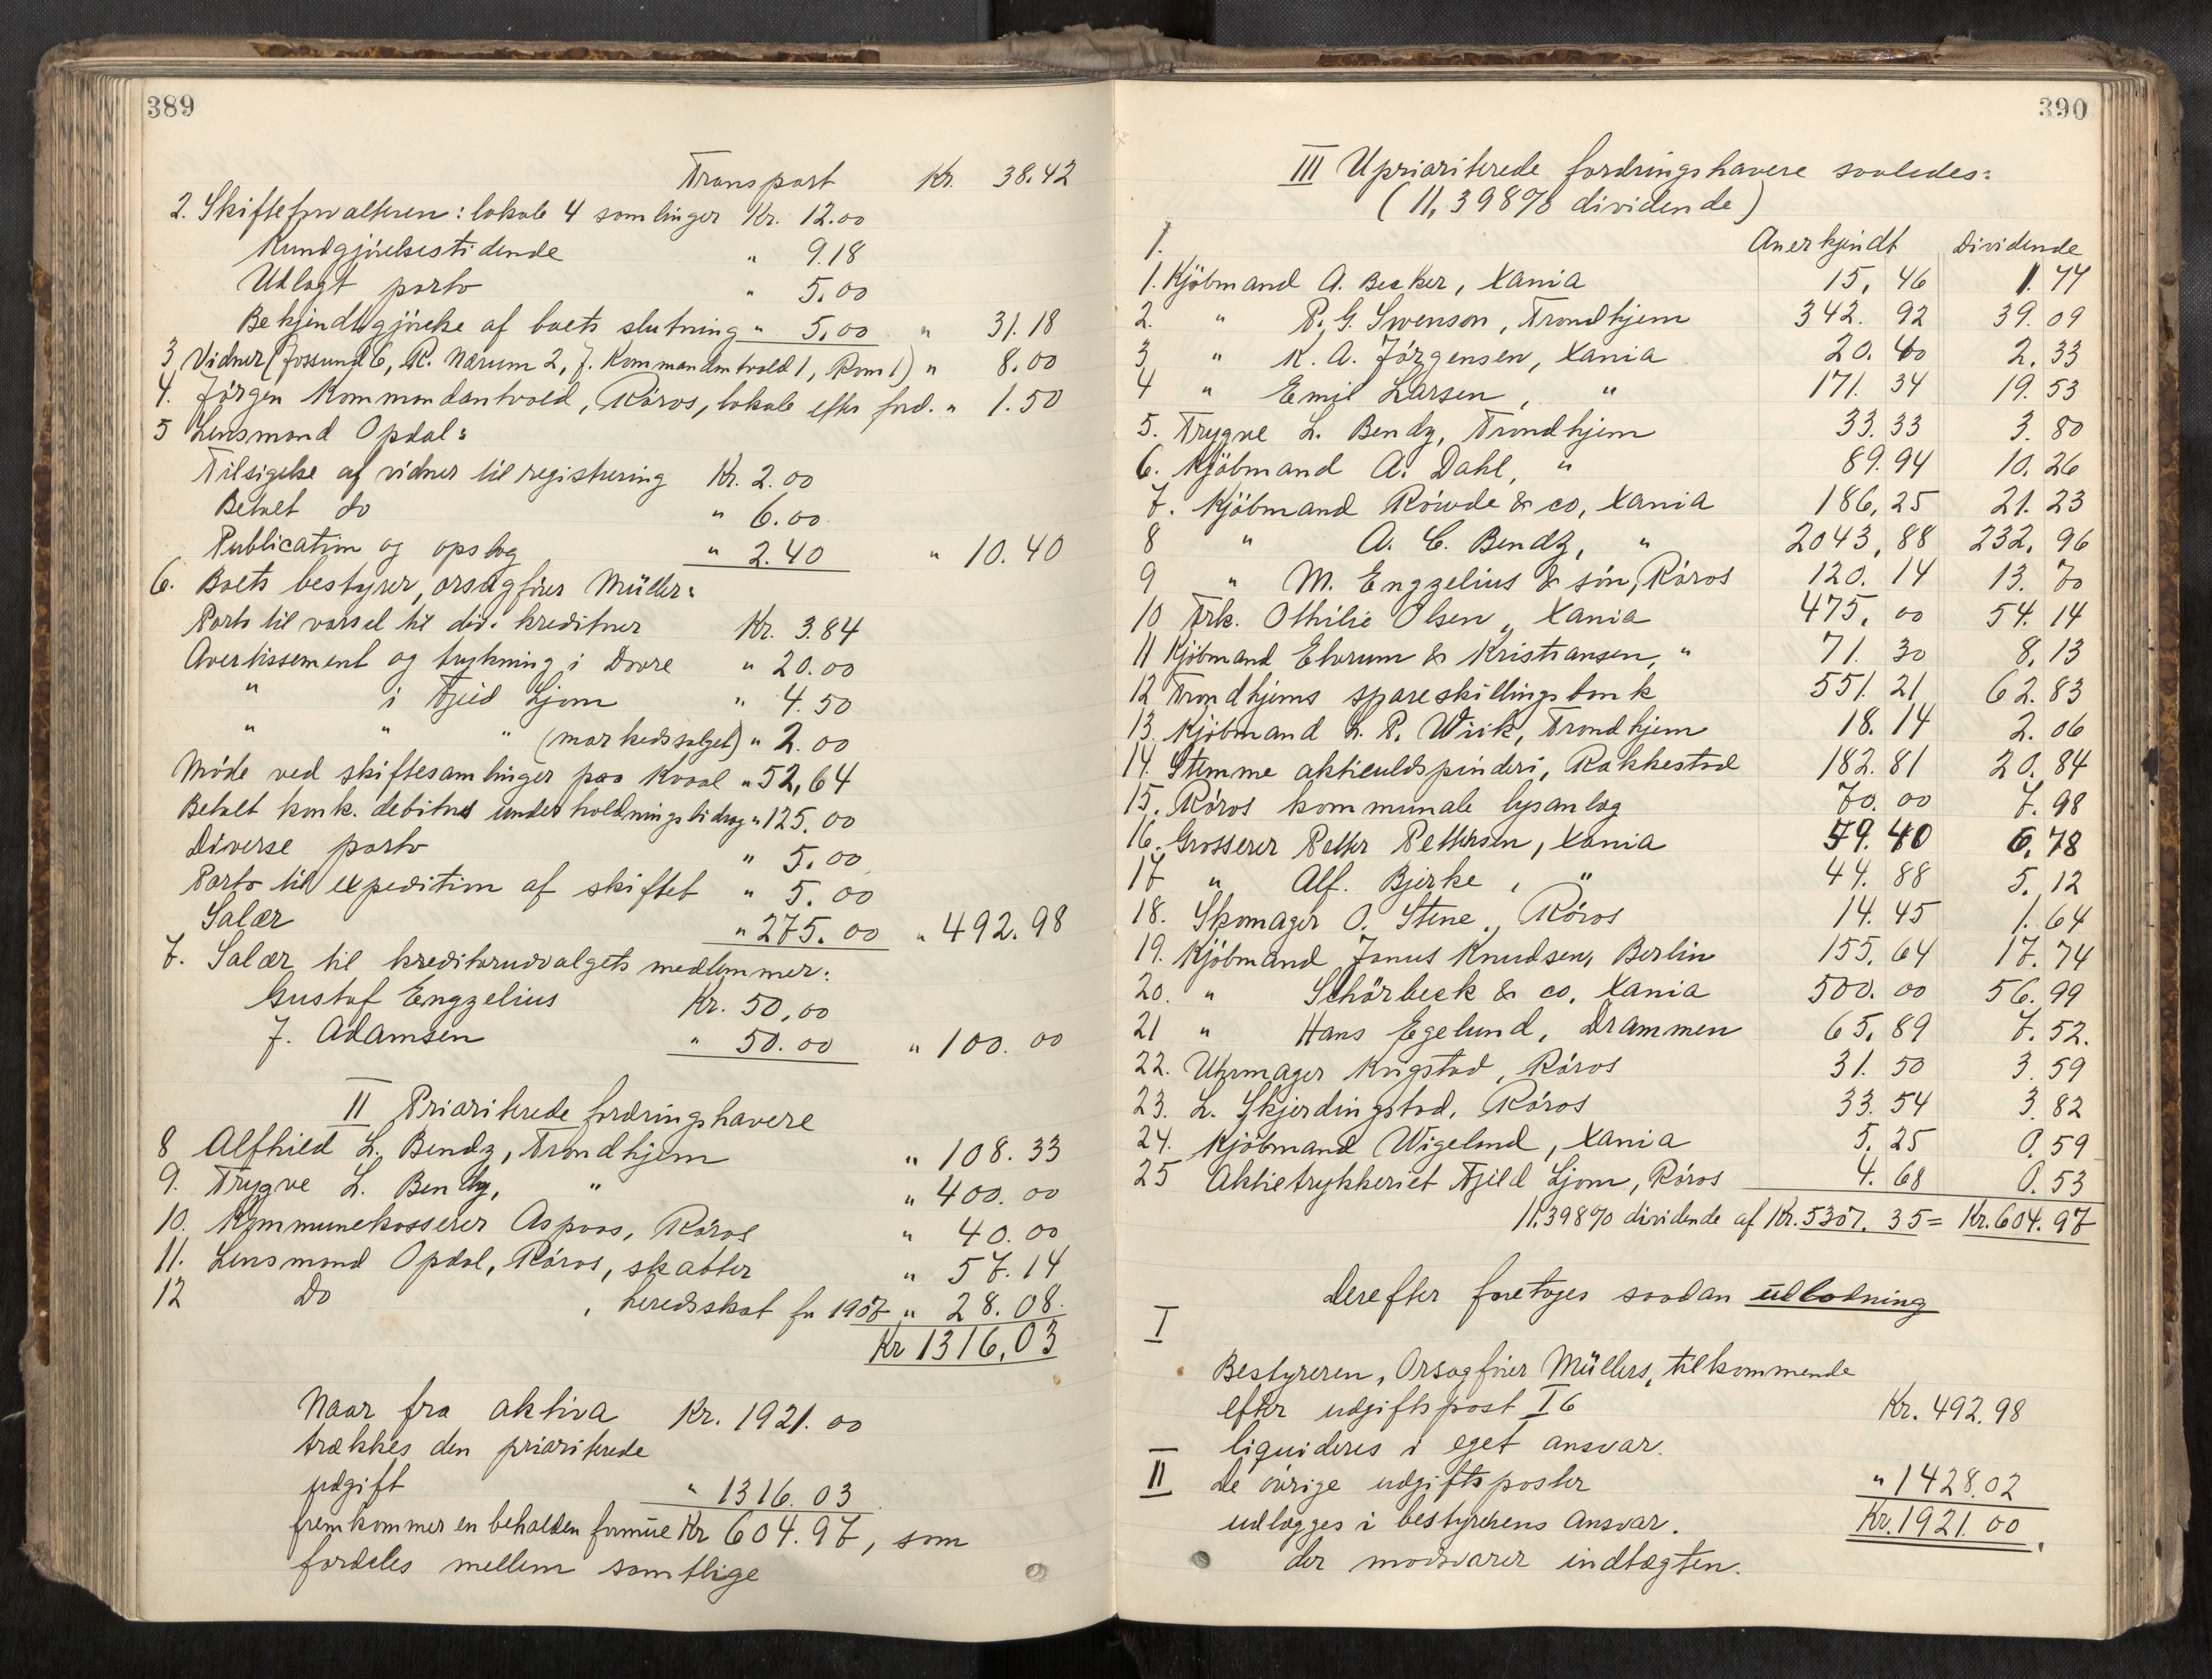 389
Transport Kr. 38.42
2. Skifteforvalteren: lokale 4 samlinger Kr. 12.00
Kundgjørelsestidende " 9.18
Udlagt porto " 5.00
Bekjendtgjørelse af boets slutning " 5.00 " 31.18
3 Vidner (Jossund 6, R. Nærum 2, J. Kommandantvold 1, Rom 1) " 8.00
4. Jørgen Kommandantvold, Røros, lokale efter ford. " 1.50
5 Lensmand Opdal:
Tilsigelse af vidner til registrering Kr. 2.00
Betalt do " 6.00
Publication og opslag " 2.40 " 10.40
6. Boets bestyrer, orsagfører Müller:
Porto til varsel til div. kreditorer Kr. 3.84
Avertissement og trykning i Dovre " 20.00
" i Fjeld Ljom " 4.50
" " " (markedssalget) " 2.00
Møde ved skiftesamlinger paa Kvaal " 52,64
Betalt konk. debitors underholdningsbidrag " 125.00
Diverse porto " 5.00
Porto til expedition af skiftet " 5.00
Salær " 275.00 " 492.98
7. Salær til kreditorudvalgets medlemmer:
Gustaf Engzelius Kr. 50,00
J. Adamsen " 50.00 " 100.00
II Prioriterede fordringshavere
8 Alfhild L. Bendz, Trondhjem " 108.33
9. Trygve L. Bendz, " " 400.00
10. Kommunekasserer Aspaas, Røros " 40.00
11. Lensmand Opdal, Røros, skatter " 57.14
12 Do , heredsskat for 1907 " 28.08
Kr 1316,03
Naar fra aktiva Kr. 1921.00
trækkes den prioriterede
udgift " 1316.03
fremkommer en beholden formue Kr 604.97, som
fordeles mellem samtlige
390
III Uprioriterede fordringshavere saaledes:
(11,398% dividende)
1. Anerkjendt Dividende
1. Kjöbmand A. Becker, Xania 15,46 1.77
2. " P. G. Swenson, Trondhjem 342.92 39.09
3 " K. A. Jörgensen, Xania 20.40 2.33
4 " Emil Larsen, " 171.34 19.53
5. Trygve L. Bendz, Trondhjem 33.33 3.80
6. Kjöbmand A. Dahl, " 89.94 10.26
7. Kjöbmand Röwde & co, Xania 186,25 21.23
8 " A. C. Bendz, " 2043,88 232,96
9 " M. Engzelius & sön, Röros 120.14 13.70
10 Frk. Othilie Olsen, Xania 475,00 54.14
11 Kjöbmand Elvrum & Kristiansen, " 71.30 8,13
12 Trondhjems spareskillingsbank 551.21 62.83
13. Kjöbmand L. P. Wiik, Trondhjem 18.14 2.06
14. Stemme aktieuldspinderi, Rakkestad 182.81 20.84
15. Röros kommunale lysanlæg 70.00 7.98
16. Grosserer Petter Pettersen, Xania 59.40 6,78
17 " Alf. Bjerke, " 44.88 5.12
18. Skomager O. Stene, Röros 14.45 1.64
19. Kjöbmand Janus Knudsen, Berlin 155.64 17.74
20. " Schörbeck & co, Xania 500.00 56.99
21 " Hans Egelund, Drammen 65,89 7.52.
22. Uhrmager Krigstad, Röros 31.50 3.59
23. L. Skjerdingstad, Röros 33.54 3.82
24. Kjöbmand Wigeland, Xania 5.25 0.59
25 Aktietrykkeriet Fjeld Ljom, Röros 4.68 0.53
11,398% dividende af Kr. 5307.35 = Kr. 604.97
Derefter foretages saadan udlodning
I
Bestyreren, Orsagfører Müllers, tilkommende
efter udgiftspost I 6 Kr. 492.98
liquideres i eget ansvar.
II De övrige udgiftsposter " 1428.02
udlægges i bestyrerens ansvar. Kr. 1921.00
der modsvarer indtægten.